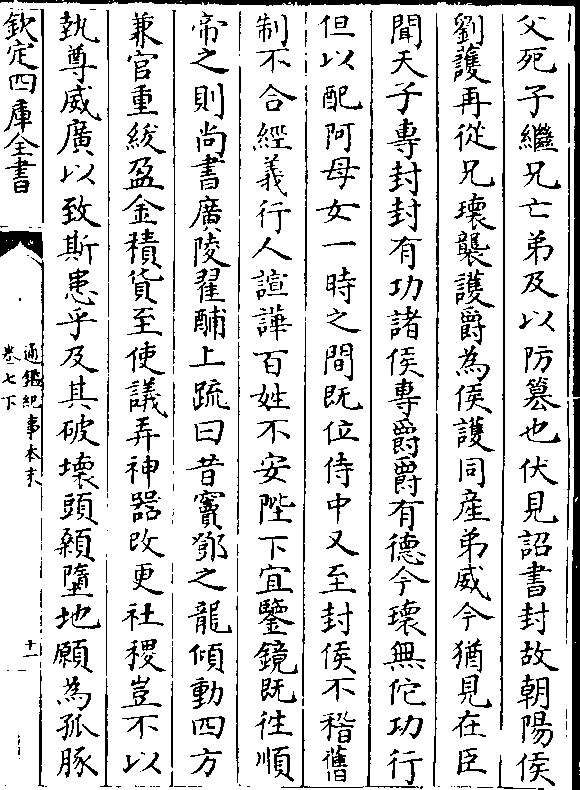 父死子繼兄亡弟及以防篡也伏見詔書封故朝陽侯
劉護再從兄瓌襲護爵為侯護同產弟威今猶見在臣
聞天子專封封有功諸侯專爵爵有德今瓌無佗功行
但以配阿母女一時之間既位侍中又至封侯不稽舊
制不合經義行人諠譁百姓不安陛下宜鑒鏡既徃順
帝之則尚書廣陵翟酺上疏曰昔竇鄧之寵傾動四方
兼官重紱盈金積貨至使議弄神器改更社稷豈不以
埶尊威廣以致斯患乎及其破壞頭顙墮地願為孤豚
欽定四庫全書
通鑑紀事本末
卷七下
十一